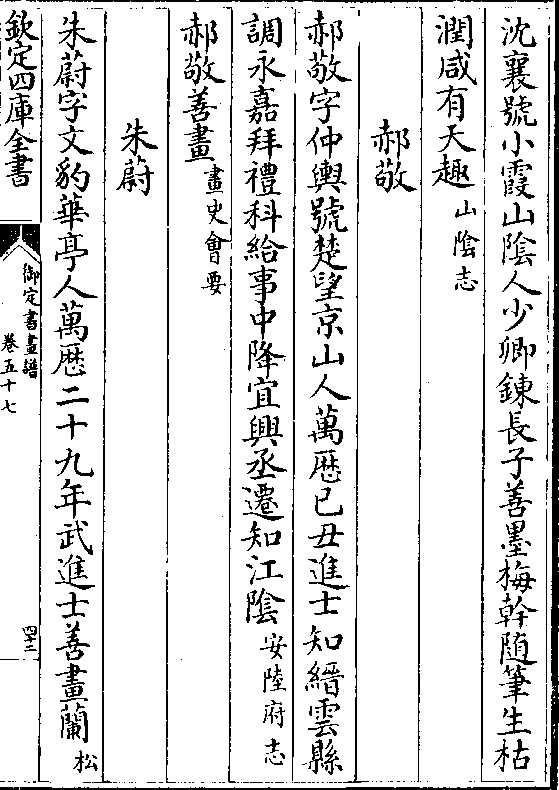 沈襄號小霞山陰人少卿鍊長子善墨梅幹随筆生枯
潤咸有天趣山陰志
郝敬
郝敬字仲輿號楚望京山人萬厯己丑進士知縉雲縣
調永嘉拜禮科給事中降宜興丞遷知江陰安陸府志
郝敬善畫畫史會要
朱蔚
朱蔚字文豹華亭人萬厯二十九年武進士善畫蘭松
欽定四庫全書
御定書畫譜
卷五十七
四十二